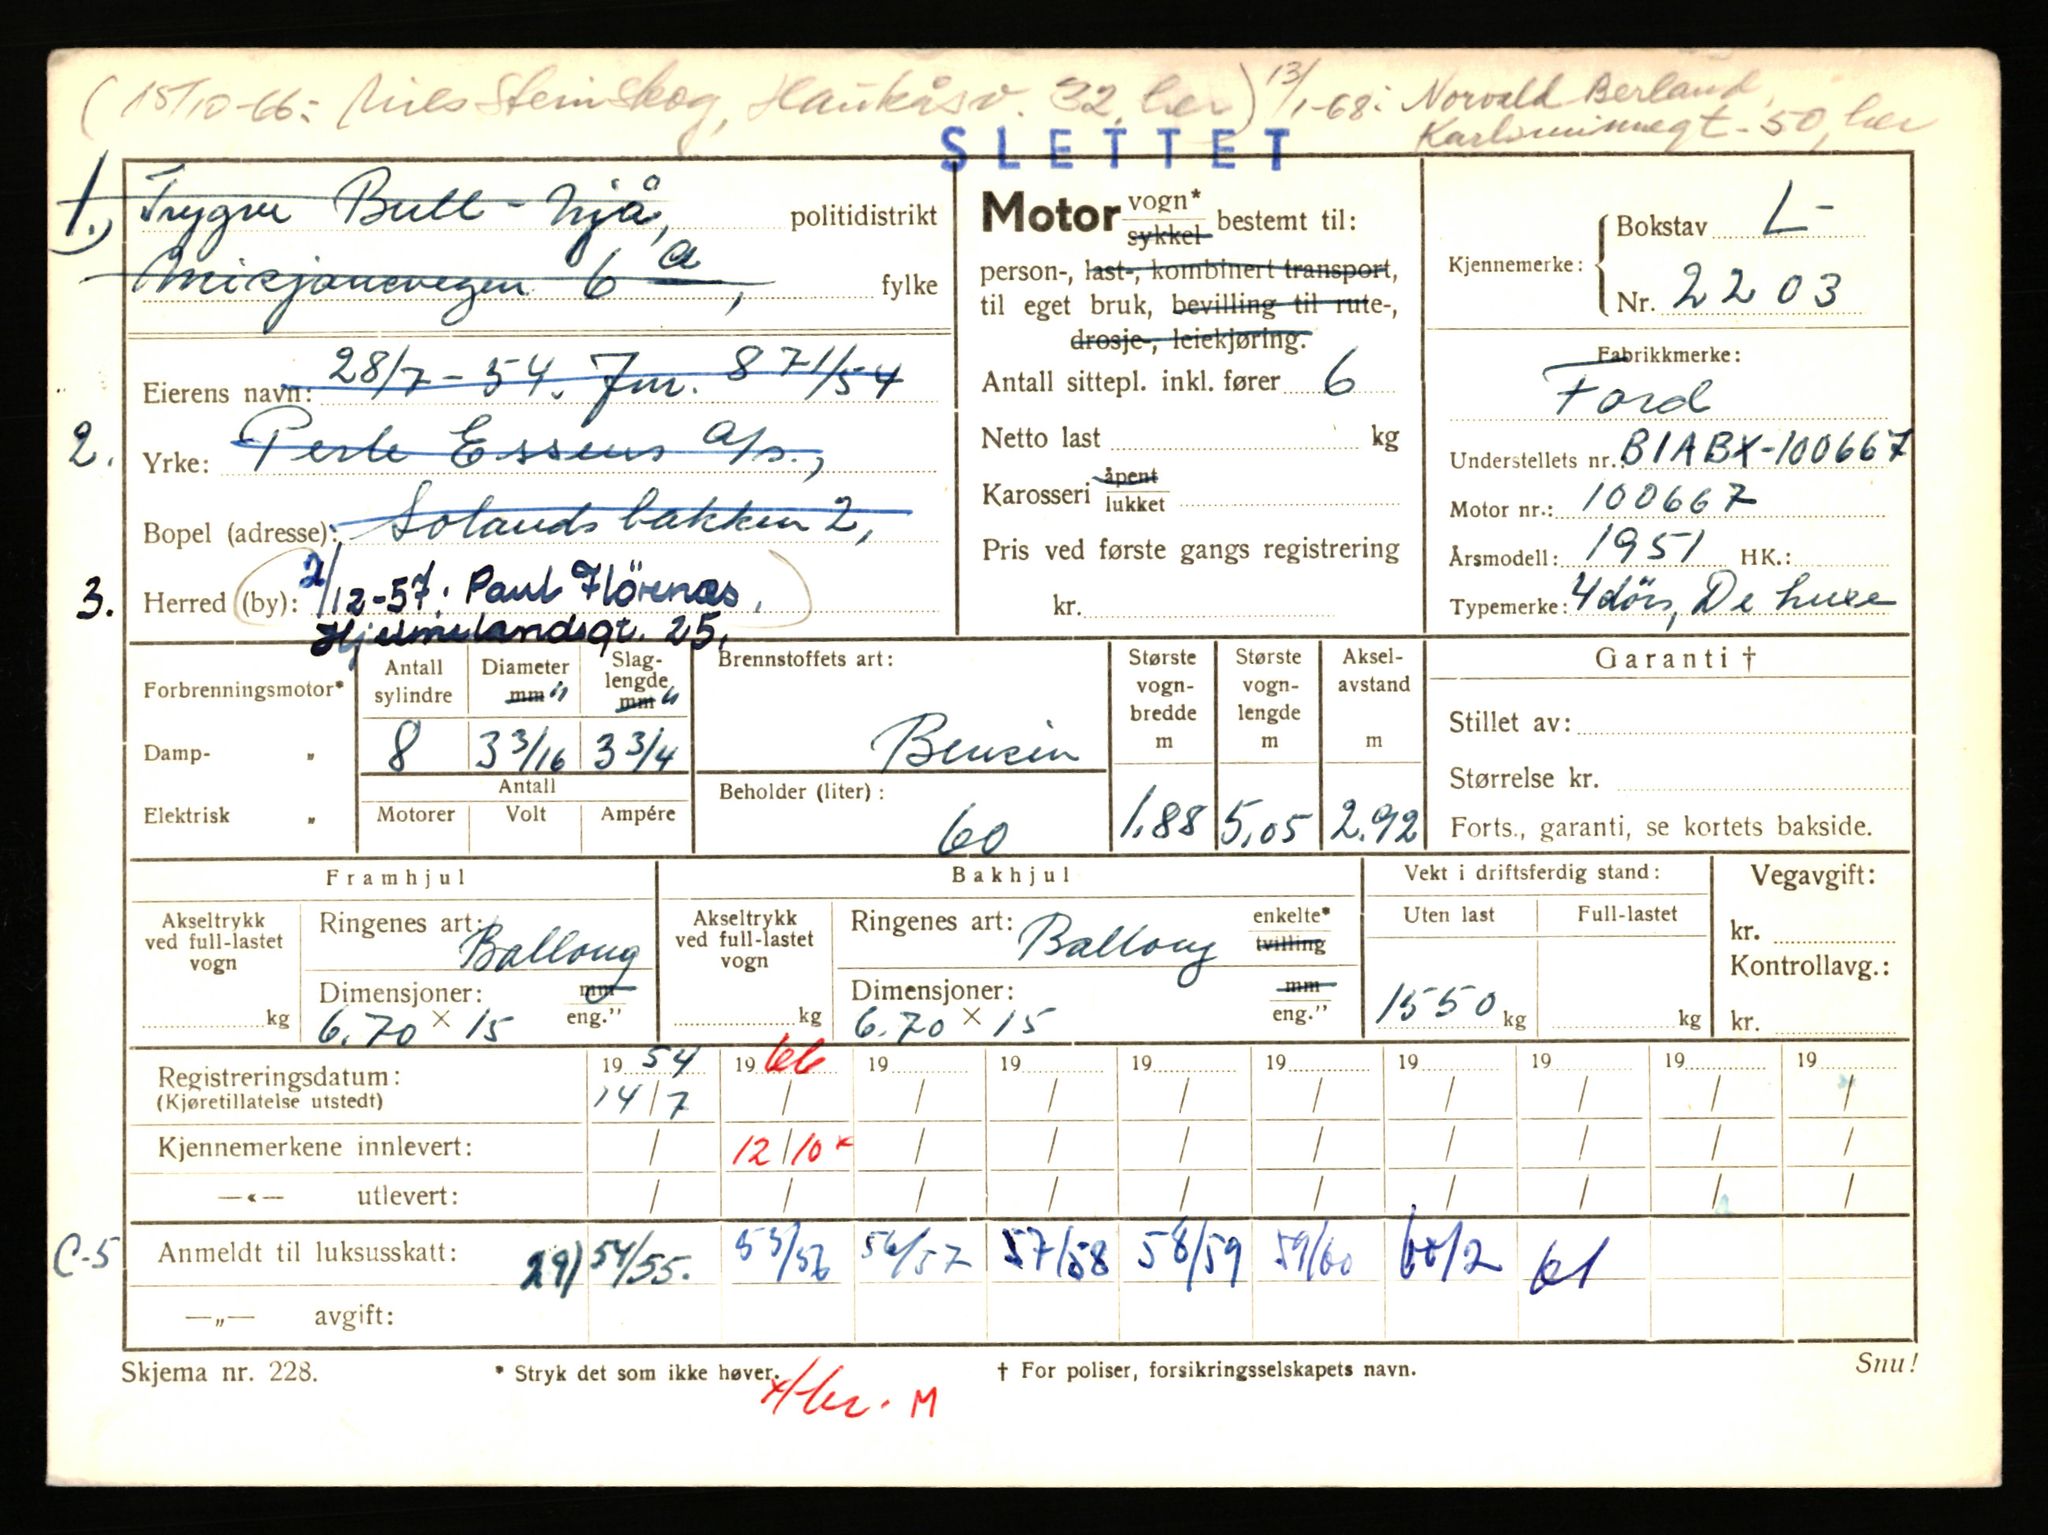 (15/10-66: Nils Steinskog, Haukåsv. 32, her) 13/1-68: Norvald Berland,
Karlsminnegt. 50, her
SLETTET
1. Trygve Bull-Njå, politidistrikt
Misjonsvegen 6 a, fylke
Eierens navn: 28/7-54. Jnr. 871/54
2. Yrke: Perle Essens a/s.,
Bopel (adresse): Solandsbakken 2,
3. Herred (by): 2/12-57: Paul Flörenæs,
Hjelmelandsgt. 25,
Motor vogn* sykkel bestemt til:
person-, last-, kombinert transport,
til eget bruk, bevilling til rute-,
drosje-, leiekjøring.
Antall sittepl. inkl. fører 6
Netto last kg
Karosseri åpent lukket
Pris ved første gangs registrering
kr.
Kjennemerke: Bokstav L-
Nr. 2203
Fabrikkmerke:
Ford
Understellets nr.: B1ABX-100667
Motor nr.: 100667
Årsmodell: 1951 HK.:
Typemerke: 4dørs, De luxe
Forbrenningsmotor*
Damp- „
Elektrisk „
Antall sylindre
8
Diameter mm "
3 3/16
Slag-lengde mm "
3 3/4
Antall
Motorer Volt Ampére
Brennstoffets art:
Bensin
Beholder (liter):
60
Største vogn-bredde m
1,88
Største vogn-lengde m
5,05
Aksel-avstand m
2.92
Garanti †
Stillet av:
Størrelse kr.
Forts., garanti, se kortets bakside.
Framhjul
Akseltrykk ved full-lastet vogn
kg
Ringenes art: Ballong
Dimensjoner: mm eng."
6.70 × 15
Bakhjul
Akseltrykk ved full-lastet vogn
kg
Ringenes art: Ballong enkelte* tvilling
Dimensjoner: mm eng."
6.70 × 15
Vekt i driftsferdig stand:
Uten last Full-lastet
1550 kg kg
Vegavgift:
kr.
Kontrollavg.:
kr.
19 54 19 66 19 19 19 19 19 19 19 19
Registreringsdatum:
(Kjøretillatelse utstedt) 14/7 / / / / / / / / /
Kjennemerkene innlevert: / 12/10 × / / / / / / / /
—«— utlevert: / / / / / / / / / /
C-5 Anmeldt til luksusskatt: 29) 54/55. 55/56 56/57 57/58 58/59 59/60 60/2 61
—„— avgift:
Skjema nr. 228. * Stryk det som ikke høver. † For poliser, forsikringsselskapets navn. Snu!
M